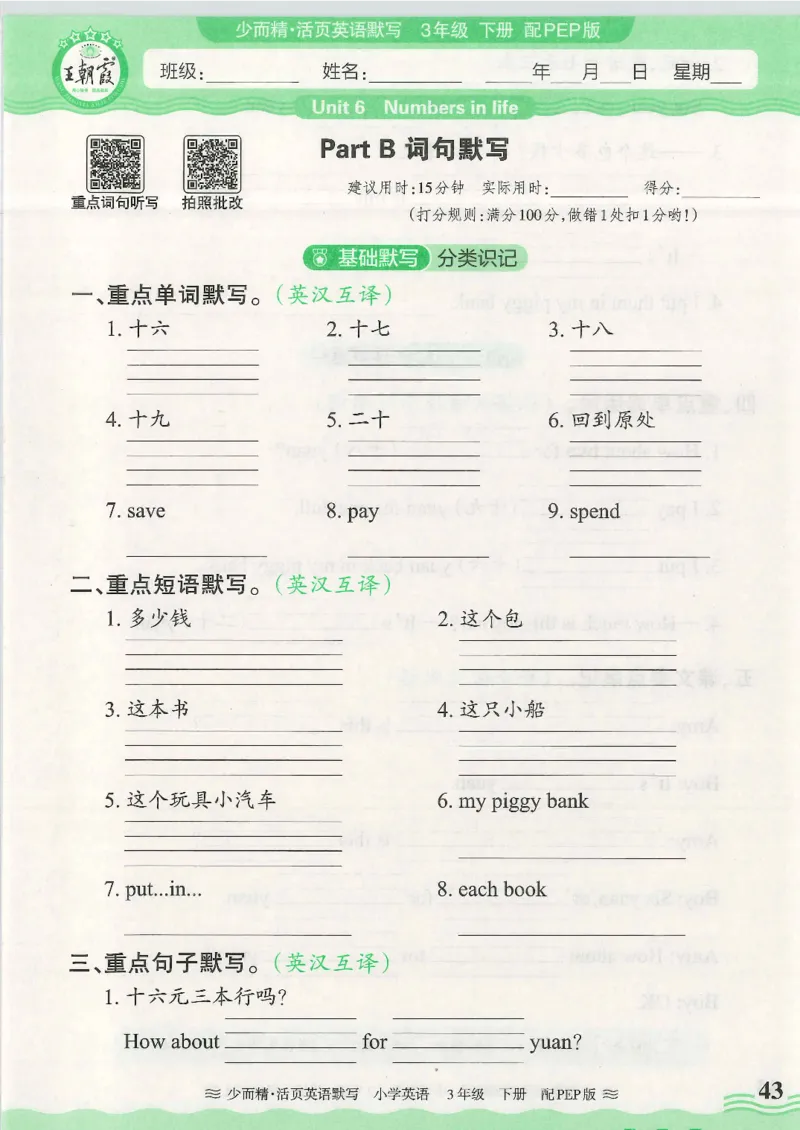 少而精·活页英语默写 3年级 下册 配PEP版
王朝霞
班级: 姓名: 年 月 日 星期
Unit 6 Numbers in life
Part B 词句默写
重点词句听写 拍照批改
建议用时:15分钟 实际用时: 得分:
(打分规则:满分100分,做错1处扣1分哟!)
基础默写 分类识记
一、重点单词默写。(英汉互译)
1. 十六 2. 十七 3. 十八
4. 十九 5. 二十 6. 回到原处
7. save 8. pay 9. spend
二、重点短语默写。(英汉互译)
1. 多少钱 2. 这个包
3. 这本书 4. 这只小船
5. 这个玩具小汽车 6. my piggy bank
7. put...in... 8. each book
三、重点句子默写。(英汉互译)
1. 十六元三本行吗?
How about for yuan?
少而精·活页英语默写 小学英语 3年级 下册 配PEP版
43